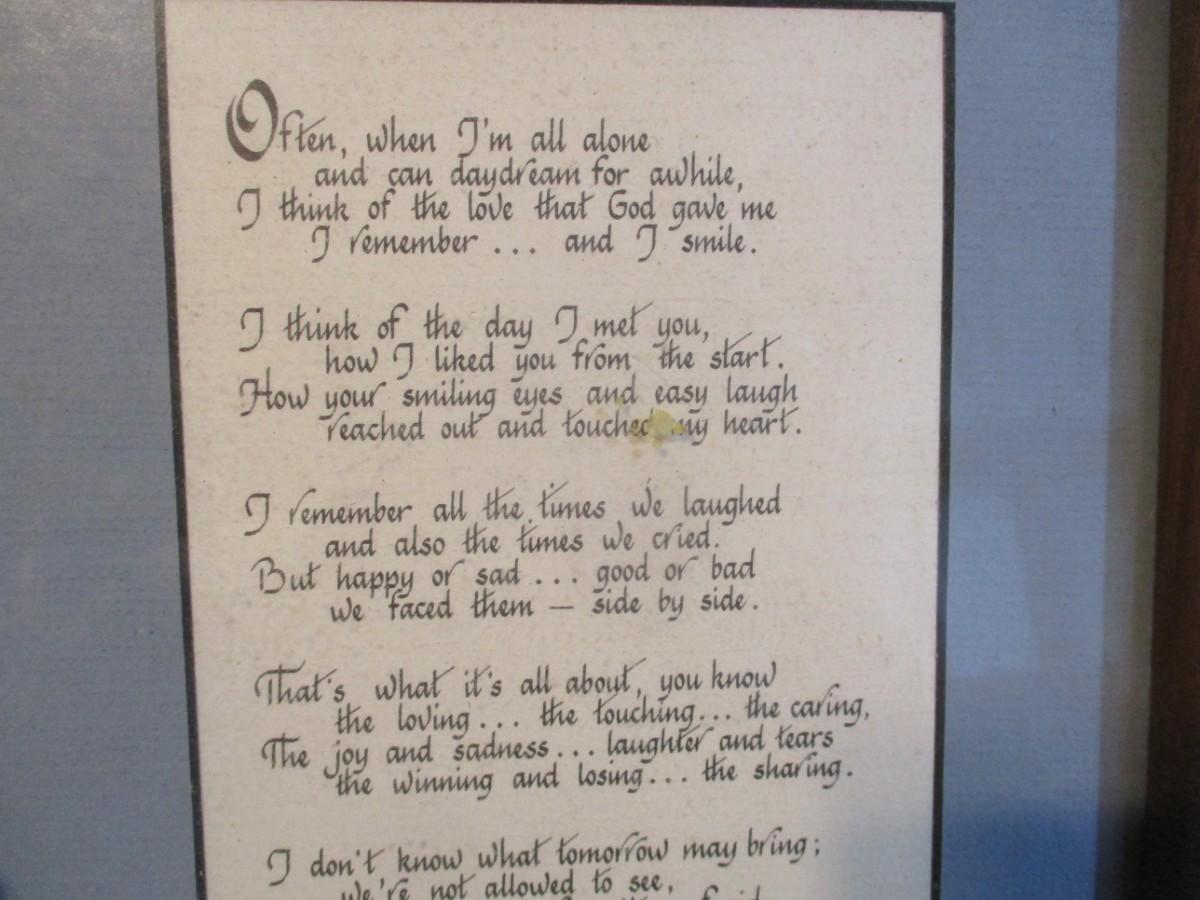 Often, when I'm all alone
and can daydream for awhile,
I think of the love that God gave me
I remember ... and I smile.
I think of the day I met you,
how I liked you from the start.
How your smiling eyes and easy laugh
reached out and touched my heart.
I remember all the times we laughed
and also the times we cried.
But happy or sad ... good or bad
we faced them — side by side.
That's what it's all about, you know
the loving ... the touching... the caring,
The joy and sadness ... laughter and tears
the winning and losing ... the sharing.
I don't know what tomorrow may bring;
we're not allowed to see,